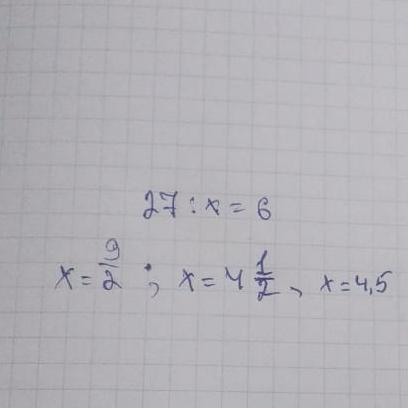 27 : x = 6
x = 9/2 ; x = 4 1/2, x = 4,5